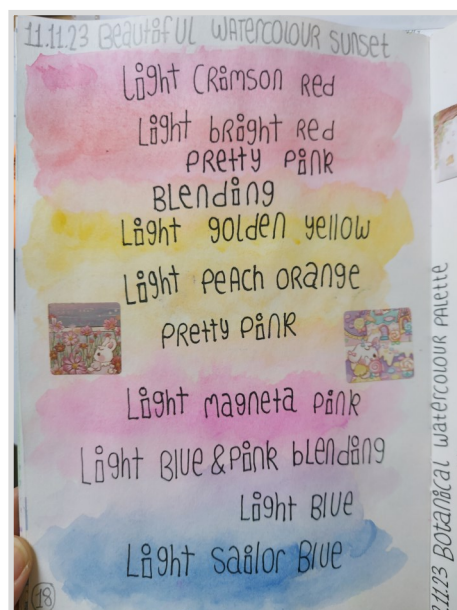 11.11.23 Beautiful WATERCOLOUR SUNSET
Light CRimson Red
Light bRight Red
PRetty Pink
BLending
Light golden yellow
Light PeAch oRange
PRetty PinK
Light magneta Pink
Light BLUe & Pink blending
Light BLUe
Light Sailor Blue
(18)
11.23 Botanical watercolour PALette